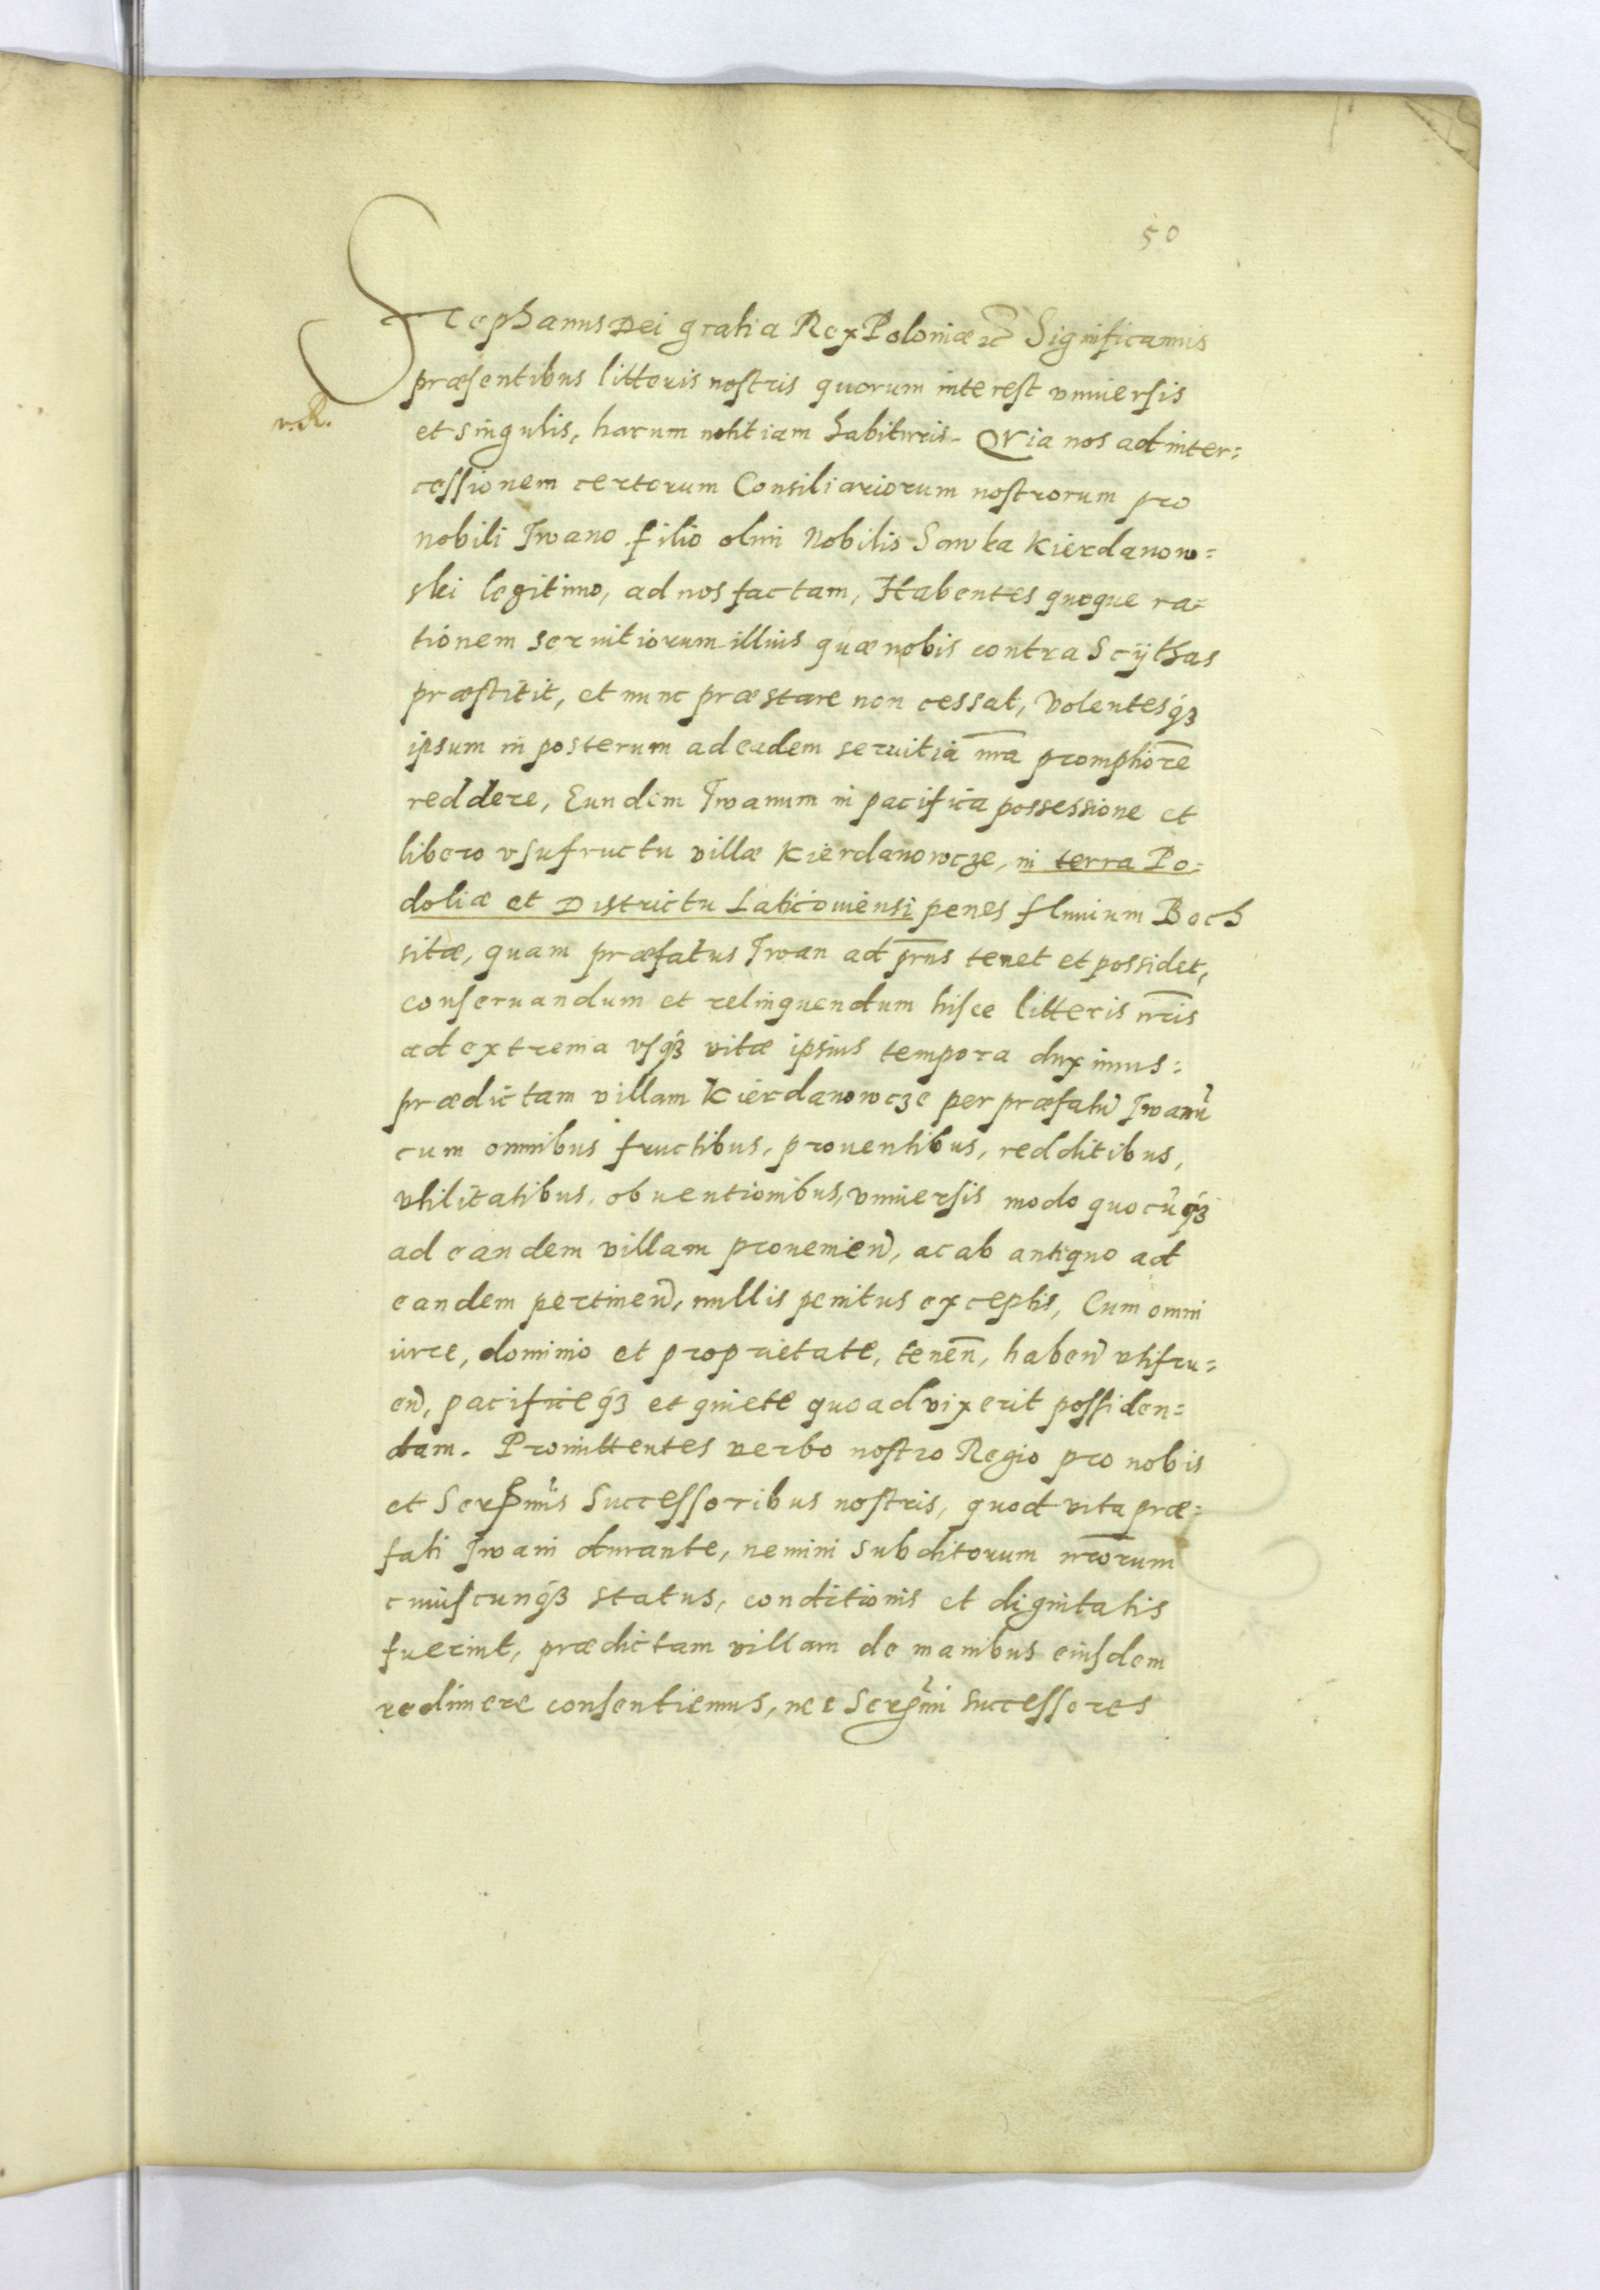 50
Stephanus Dei gratia Rex Poloniæ etc Significamus
præsentibus litteris nostris quorum interest vniuersis
v. R.
et singulis, harum notitiam habituris. QVia nos ad inter=
cessionem certorum Consiliariorum nostrorum pro
nobili Iwano filio olim Nobilis Sawka Kierdanow=
ski legitimo, ad nos factam, Habentes quoque ra=
tionem seruitiorum illius quæ nobis contra Scÿthas
præstitit, et nunc præstare non cessat, Volentesq́ꝫ
ipsum in posterum ad eadem seruitia nr̅a promptiore̅
reddere, Eundem Iwanum in pacifica possessione et
libero vsufructu villæ Kierdanowcze, in terra Po=
doliæ et Districtu Laticouiensi penes fluuium Boch
sitæ, quam præfatus Iwan ad pr̅ns tenet et possidet,
conseruandum et relinquendum hisce litteris nr̅is
ad extrema vsq́ꝫ vitæ ipsius tempora duximus:
prædictam villam Kierdanowcze per præfatu̅ Iwanu̅
cum omnibus fructibus, prouentibus, redditibus,
vtilitatibus, obuentionibus, vniuersis modo quocu̅q́ꝫ
ad eandem villam prouenien̅, ac ab antiquo ad
eandem pertinen̅, nullis penitus exceptis, Cum omni
iure, dominio et proprietate, tenen̅, haben̅ vtifru=
en̅, pacificeq́ꝫ et quiete quoad vixerit possiden=
dam. Promittentes verbo nostro Regio pro nobis
et Ser̅mis Successoribus nostris, quod vita præ=
fati Iwani durante, nemini subditorum nr̅orum
cuiuscunq́ꝫ status, conditionis et dignitatis
fuerint, prædictam villam de manibus eiusdem
redimere consentiemus, nec Ser̅mi Successores